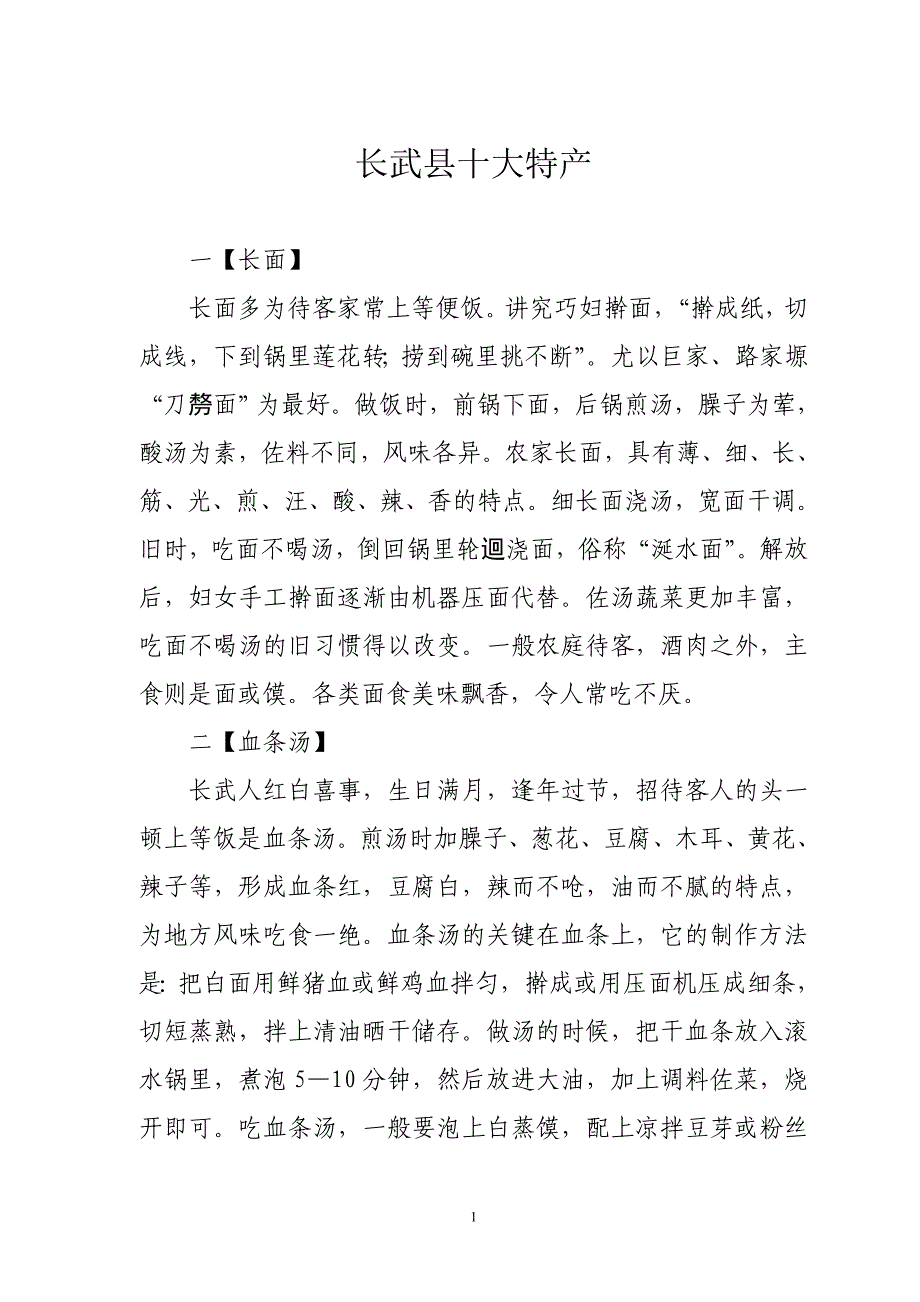 长武县十大特产
一【长面】
长面多为待客家常上等便饭。讲究巧妇擀面，“擀成纸，切
成线，下到锅里莲花转；捞到碗里挑不断”。尤以巨家、路家塬
“刀剺面”为最好。做饭时，前锅下面，后锅煎汤，臊子为荤，
酸汤为素，佐料不同，风味各异。农家长面，具有薄、细、长、
筋、光、煎、汪、酸、辣、香的特点。细长面浇汤，宽面干调。
旧时，吃面不喝汤，倒回锅里轮迴浇面，俗称“涎水面”。解放
后，妇女手工擀面逐渐由机器压面代替。佐汤蔬菜更加丰富，
吃面不喝汤的旧习惯得以改变。一般农庭待客，酒肉之外，主
食则是面或馍。各类面食美味飘香，令人常吃不厌。
二【血条汤】
长武人红白喜事，生日满月，逢年过节，招待客人的头一
顿上等饭是血条汤。煎汤时加臊子、葱花、豆腐、木耳、黄花、
辣子等，形成血条红，豆腐白，辣而不呛，油而不腻的特点，
为地方风味吃食一绝。血条汤的关键在血条上，它的制作方法
是：把白面用鲜猪血或鲜鸡血拌匀，擀成或用压面机压成细条，
切短蒸熟，拌上清油晒干储存。做汤的时候，把干血条放入滚
水锅里，煮泡 5—10 分钟，然后放进大油，加上调料佐菜，烧
开即可。吃血条汤，一般要泡上白蒸馍，配上凉拌豆芽或粉丝
1